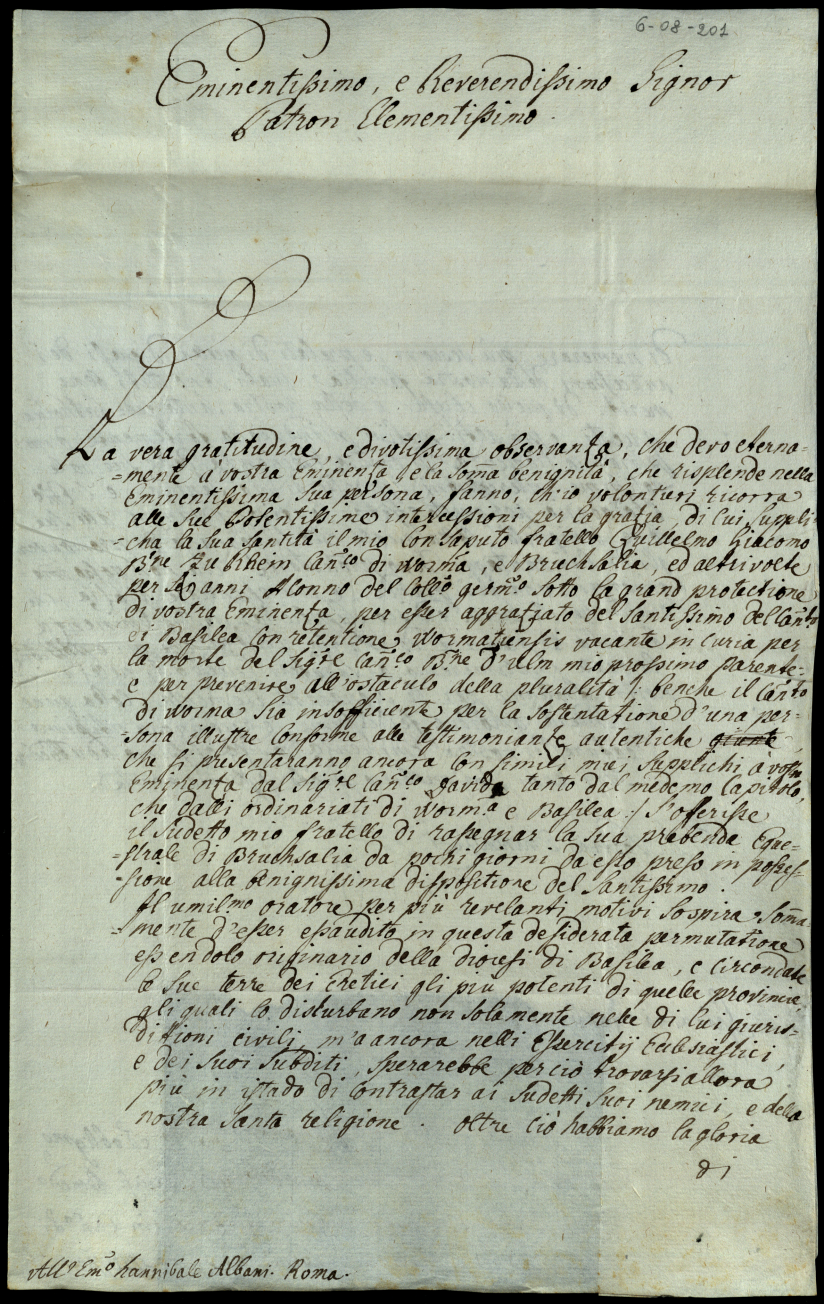 6-08-201
Eminentissimo, e Reverendissimo Signor
Patron Clementissimo.
La vera gratitudine, e divotissima observanza, che devo eterna=
=mente a vostra Eminenza, e la som̄a benignità, che risplende nella
Eminentissima sua persona, fanno, ch'io volontieri ricorra
alle sue Potentissime intercessioni per la grazia, di cui suppli=
=cha la sua santità il mio consaputo fratello Guillelmo Giacomo
B.ne Rubrheim Can.co di Worma, e Bruchsalia, ed altrivolte
per anni Alonno del Coll.o Germ.co sotto la grand protectione
di vostra Eminenza, per esser aggraziato del Santissimo del Can.to
ei Basilea con retentione Wormatiensis vacante in curia per
la morte del Sig.re Can.co B.ne d'Ulm mio prossimo parente
e per prevenire all'ostaculo della pluralità /: benche il Can.to
di Worma sia insofficiente per la sostentatione d'una per=
sona illustre conforme alle testimonianze autentiche giunte,
che si presentaranno ancora con simili miei supplichi a vostra
Eminenza dal Sig.re Can.co tanto dal medemo Capitolo,
che dalli ordinariati di Worm.a e Basilea :/ s'offerisse
il sudetto mio fratello di rasegnar la sua prabenda Eque=
=strale di Bruchsalia da pochi giorni da esso preso in posses=
=sione alla benignissima dispositione del Santissimo.
Il umil.mo oratore per più revelanti motivi sospira som̄a=
=mente d'esser essaudito in questa desiderata permutatione
essendolo originario della diocesi di Basilea, e circondate
le sue terre dei Eretici gli più potenti di quelle provincie,
gli quali lo disturbano non solamente nelle di lui giuris=
dizioni civili, m'a ancora nelli Essercitij Eccl.siastici,
e dei suoi subditi, sperarebbe perciò trovarsi allora
più in istado di contrastar ai sudetti suoi nemici, e della
nostra santa religione. oltre ciò habbiamo la gloria
di
All' Em.o Hannibale Albani. Roma.